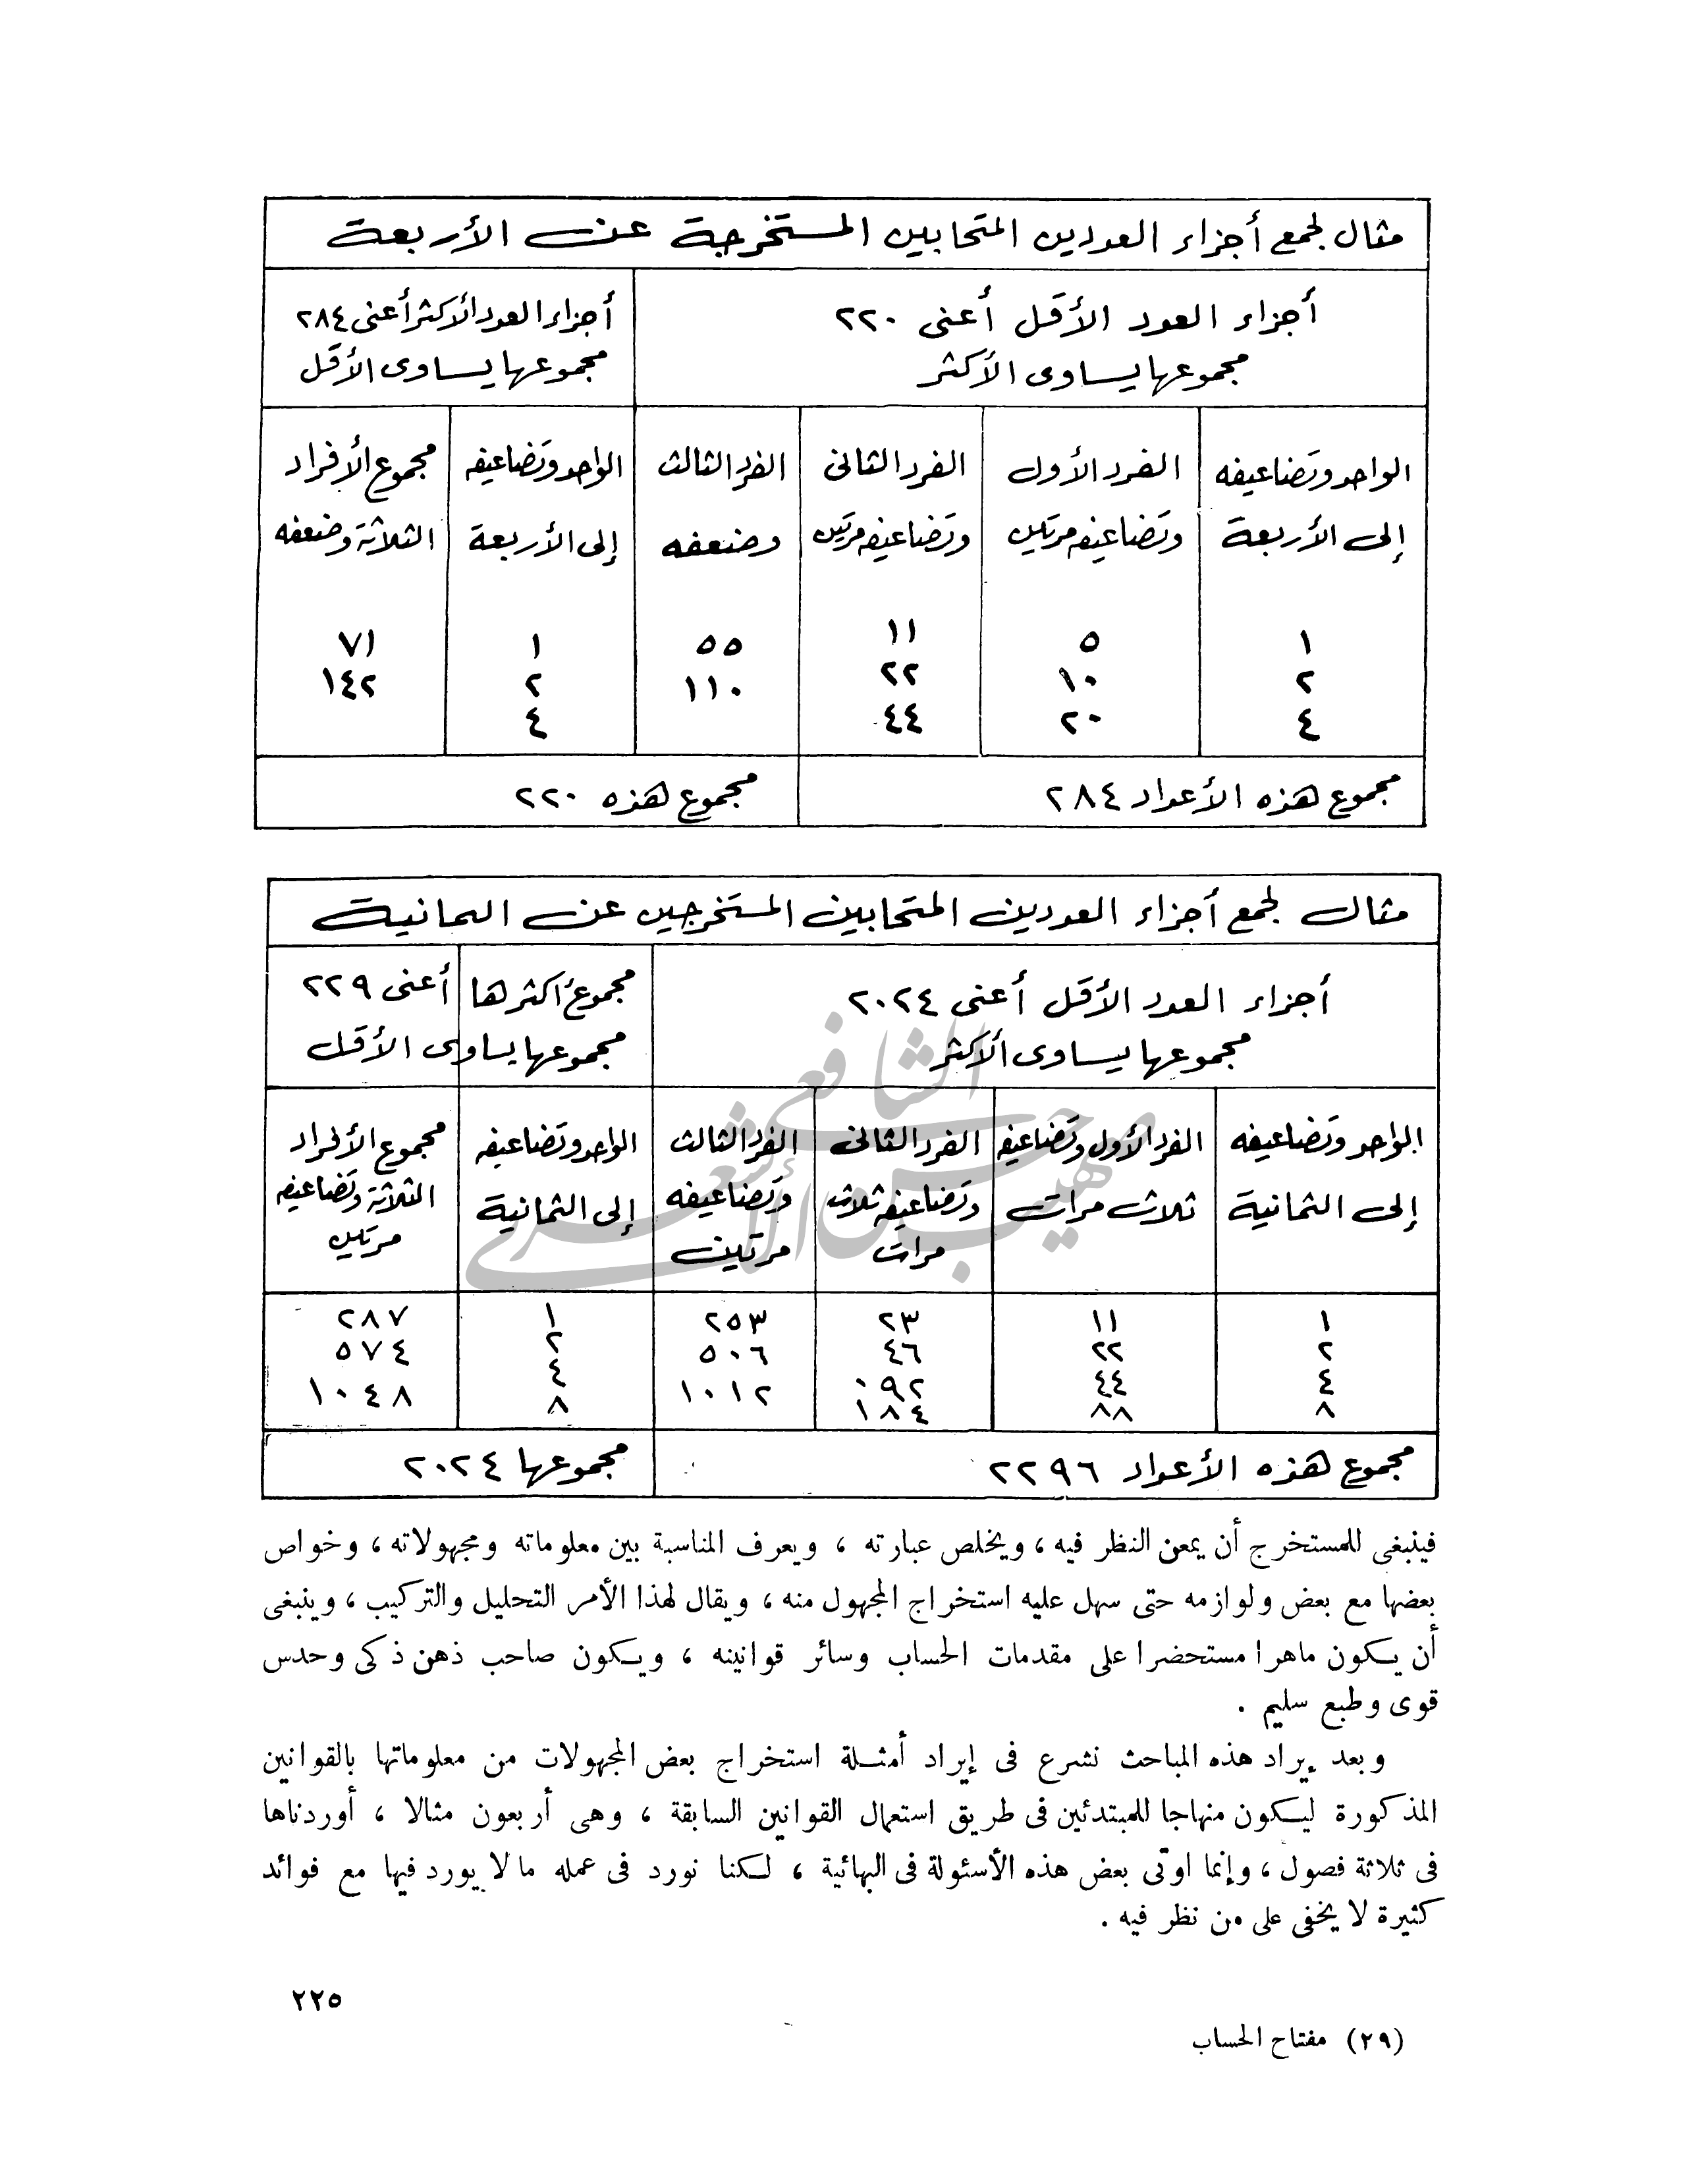 مثال لجمع أجزاء العددين المتحابين المستخرجة عن الأربعة
أجزاء العدد الأقل أعنى ٢٢٠
مجموعها يساوى الأكثر
أجزاء العدد الأكثر أعنى ٢٨٤
مجموعها يساوى الأقل
الواحد وتضاعيفه إلى الأربعة
الفرد الأول وتضاعيفه مرتين
الفرد الثانى وتضاعيفه مرتين
الفرد الثالث وضعفه
الواحد وتضاعيفه إلى الأربعة
مجموع الأفراد الثلاثة وضعفه
١ ٥ ١١ ٥٥ ١ ٧١
٢ ١٠ ٢٢ ١١٠ ٢ ١٤٢
٤ ٢٠ ٤٤ ٤
مجموع هذه الأعداد ٢٨٤ مجموع هذه ٢٢٠
مثال لجمع أجزاء العددين المتحابين المستخرجين عن الثمانية
أجزاء العدد الأقل أعنى ٢٠٢٤
مجموعها يساوى الأكثر
مجموع أكثرها أعنى ٢٢٩
مجموعها يساوى الأقل
الواحد وتضاعيفه إلى الثمانية
الفرد الأول وتضاعيفه ثلاث مرات
الفرد الثانى وتضاعيفه ثلاث مرات
الفرد الثالث وتضاعيفه مرتين
الواحد وتضاعيفه إلى الثمانية
مجموع الأفراد الثلاثة وتضاعيفه مرتين
١ ١١ ٢٣ ٢٥٣ ١ ٢٨٧
٢ ٢٢ ٤٦ ٥٠٦ ٢ ٥٧٤
٤ ٤٤ ٠٩٢ ١٠١٢ ٤ ١٠٤٨
٨ ٨٨ ١٨٤ ٨
مجموع هذه الأعداد ٢٢٩٦ مجموعها ٢٠٢٤
فينبغى للمستخرج أن يمعن النظر فيه ، ويخلص عبارته ، ويعرف المناسبة بين معلوماته ومجهولاته ، وخواص
بعضها مع بعض ولوازمه حتى سهل عليه استخراج المجهول منه ، ويقال لهذا الأمر التحليل والتركيب ، وينبغى
أن يكون ماهرا مستحضرا على مقدمات الحساب وسائر قوانينه ، ويكون صاحب ذهن ذكى وحدس
قوى وطبع سليم .
وبعد إيراد هذه المباحث نشرع فى إيراد أمثلة استخراج بعض المجهولات من معلوماتها بالقوانين
المذكورة ليكون منهاجا للمبتدئين فى طريق استعمال القوانين السابقة ، وهى أربعون مثالا ، أوردناها
فى ثلاثة فصول ، وإنما اوتى بعض هذه الأسئولة فى البهائية ، لكنا نورد فى عمله ما لا يورد فيها مع فوائد
كثيرة لا يخفى على من نظر فيه .
٢٢٥
(٢٩) مفتاح الحساب